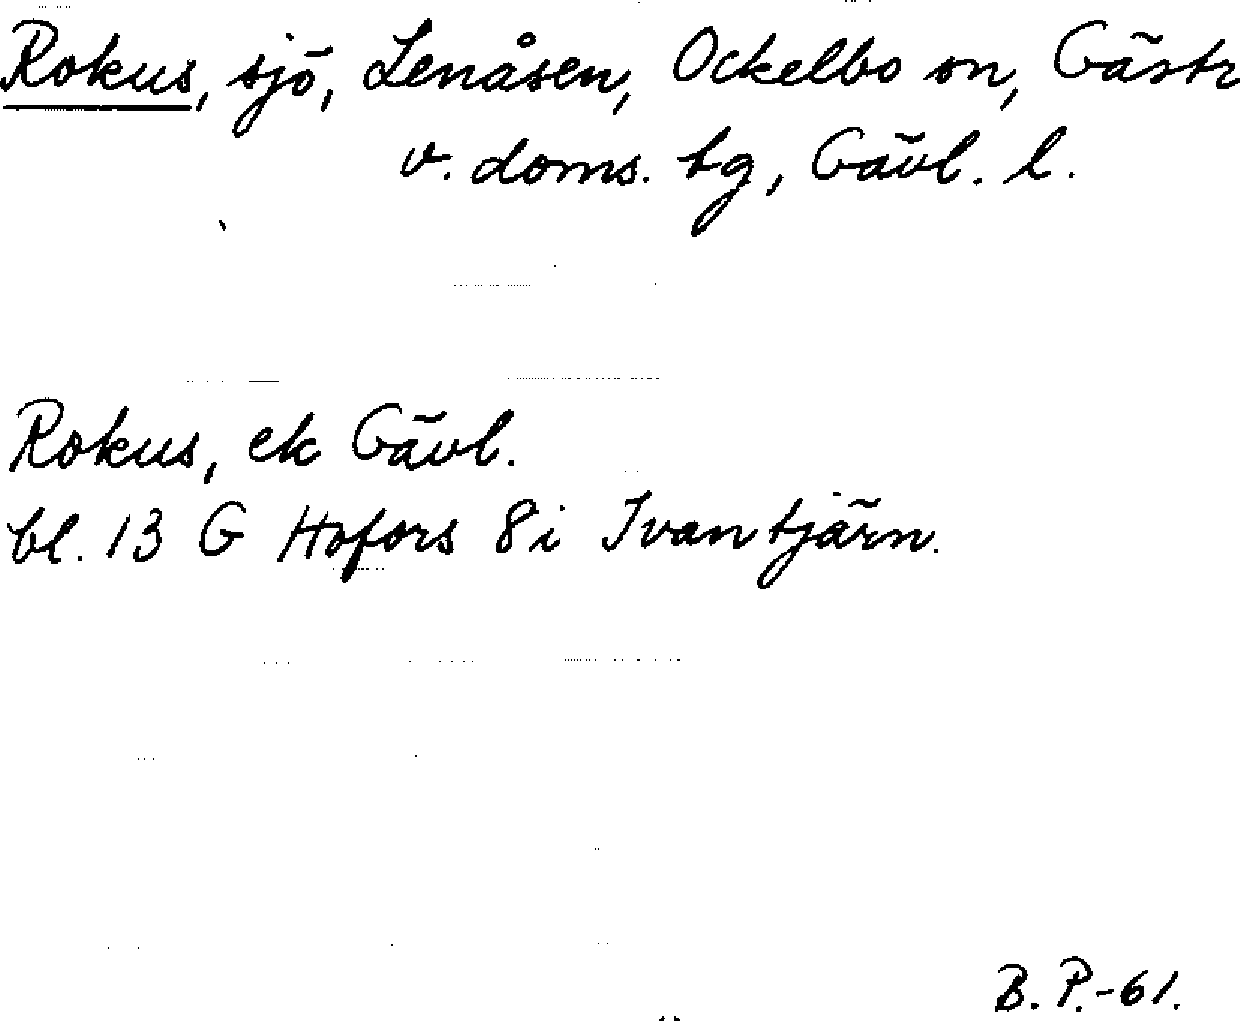 Rokus, sjö, Lenåsen, Ockelbo sn, Gästr
v. doms. tg, Gävl. l.
Rokus, ek Gävl.
bl. 13 G Hofors 8i Ivantjärn.
B. P.-61.